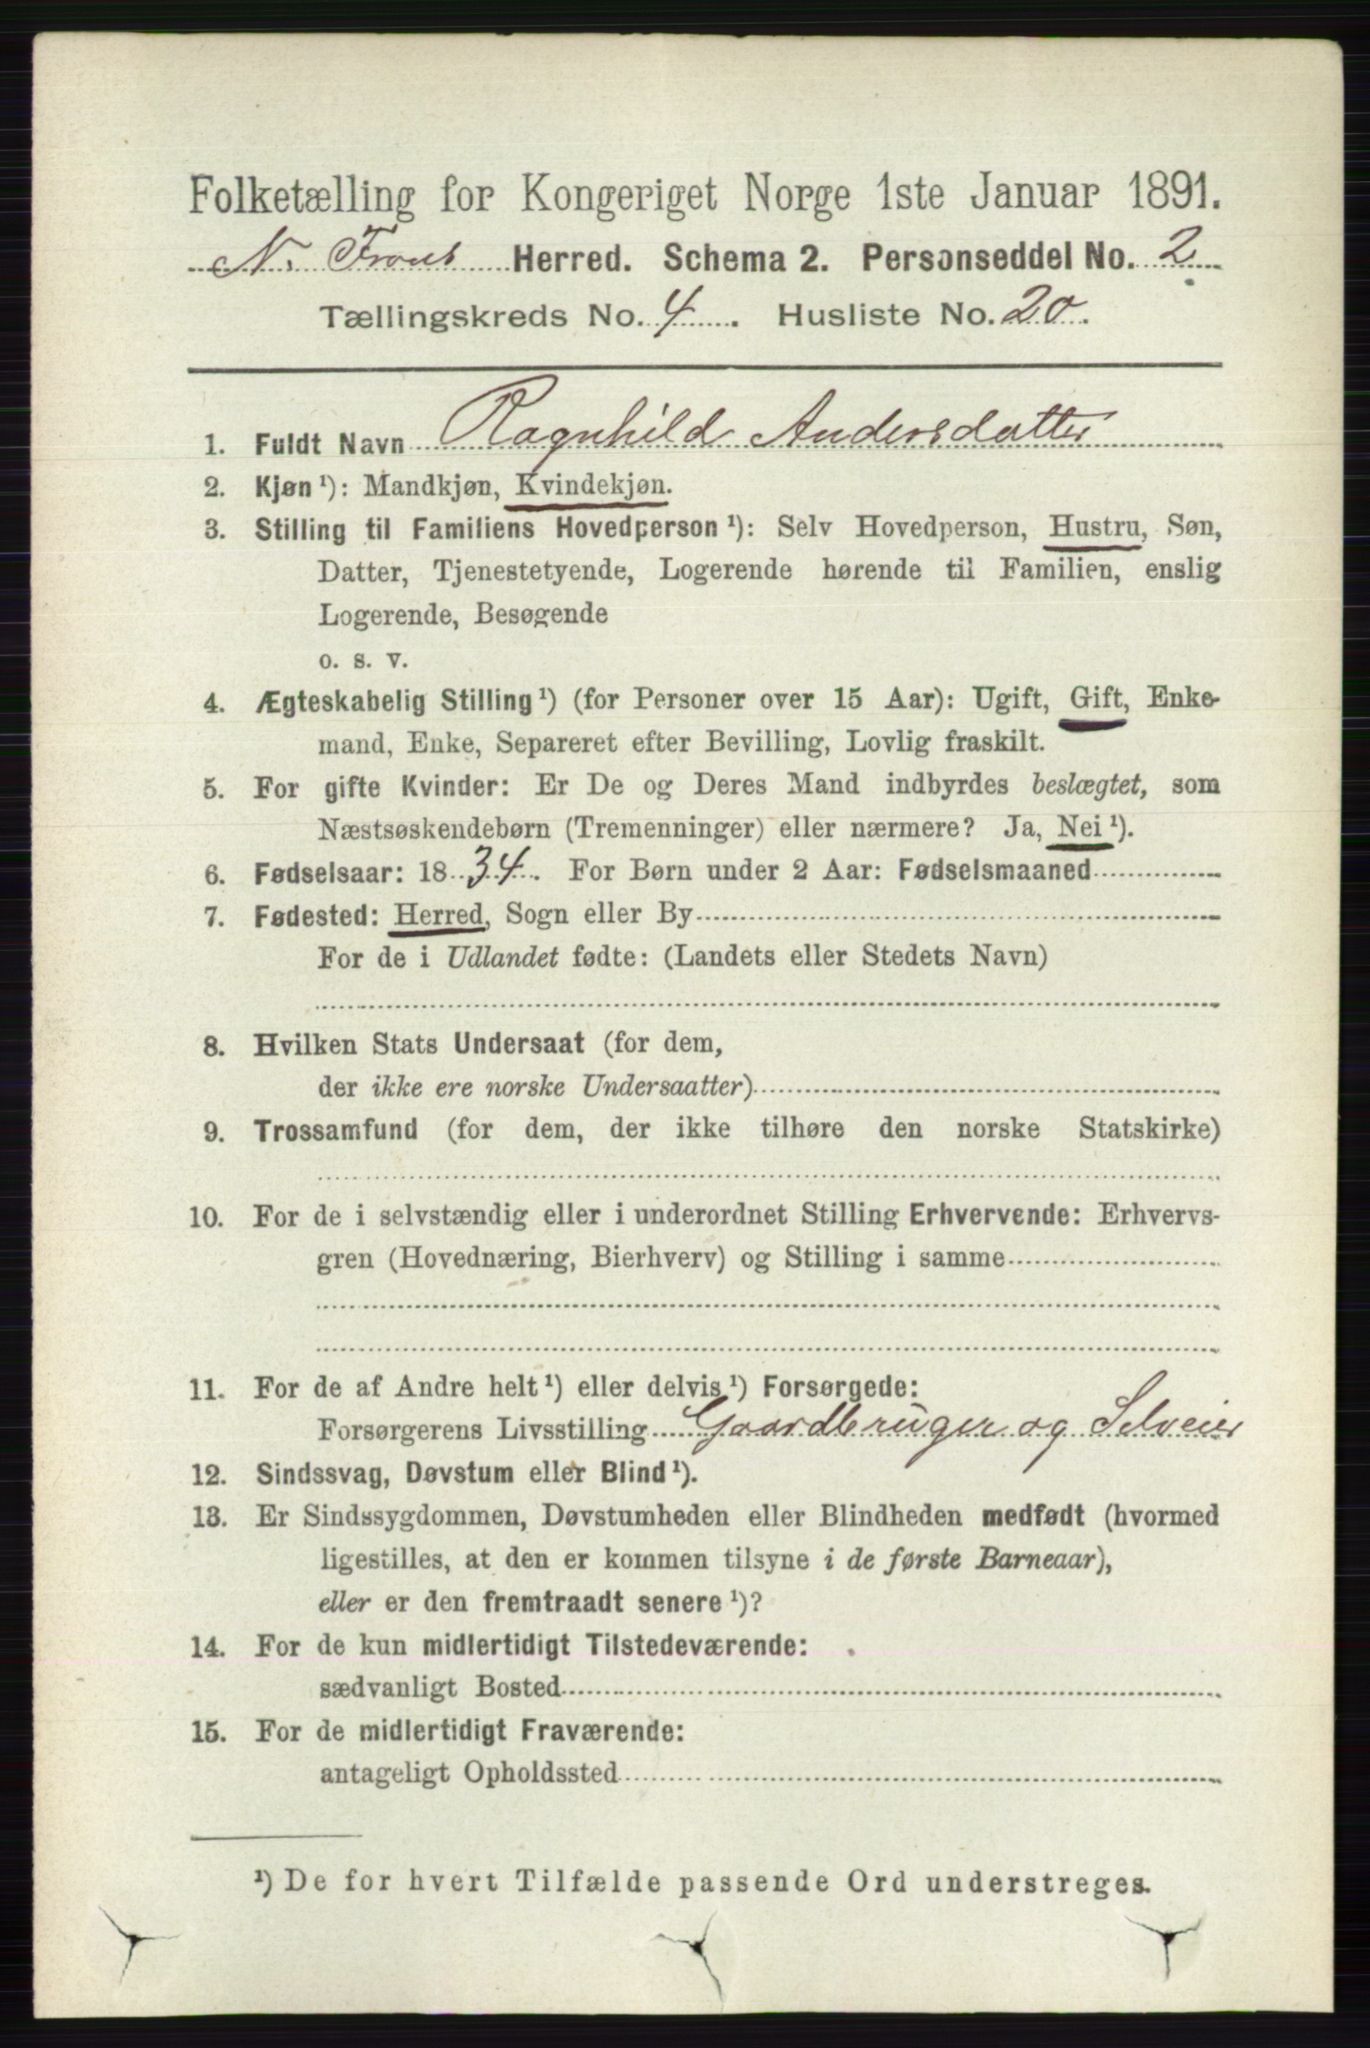 Folketælling for Kongeriget Norge 1ste Januar 1891.
N. Frons Herred. Schema 2. Personseddel No. 2
Tællingskreds No. 4. Husliste No. 20.
1. Fuldt Navn Ragnhild Andersdatter
2. Kjøn ¹): Mandkjøn, Kvindekjøn.
3. Stilling til Familiens Hovedperson ¹): Selv Hovedperson, Hustru, Søn,
Datter, Tjenestetyende, Logerende hørende til Familien, enslig
Logerende, Besøgende
o. s. v.
4. Ægteskabelig Stilling ¹) (for Personer over 15 Aar): Ugift, Gift, Enke-
mand, Enke, Separeret efter Bevilling, Lovlig fraskilt.
5. For gifte Kvinder: Er De og Deres Mand indbyrdes beslægtet, som
Næstsøskendebørn (Tremenninger) eller nærmere? Ja, Nei ¹).
6. Fødselsaar: 1834. For Børn under 2 Aar: Fødselsmaaned
7. Fødested: Herred, Sogn eller By
For de i Udlandet fødte: (Landets eller Stedets Navn)
8. Hvilken Stats Undersaat (for dem,
der ikke ere norske Undersaatter)
9. Trossamfund (for dem, der ikke tilhøre den norske Statskirke)
10. For de i selvstændig eller i underordnet Stilling Erhvervende: Erhvervs-
gren (Hovednæring, Bierhverv) og Stilling i samme
11. For de af Andre helt ¹) eller delvis ¹) Forsørgede:
Forsørgerens Livsstilling Gaardbruger og Selveier
12. Sindssvag, Døvstum eller Blind ¹).
13. Er Sindssygdommen, Døvstumheden eller Blindheden medfødt (hvormed
ligestilles, at den er kommen tilsyne i de første Barneaar),
eller er den fremtraadt senere ¹)?
14. For de kun midlertidigt Tilstedeværende:
sædvanligt Bosted
15. For de midlertidigt Fraværende:
antageligt Opholdssted
¹) De for hvert Tilfælde passende Ord understreges.